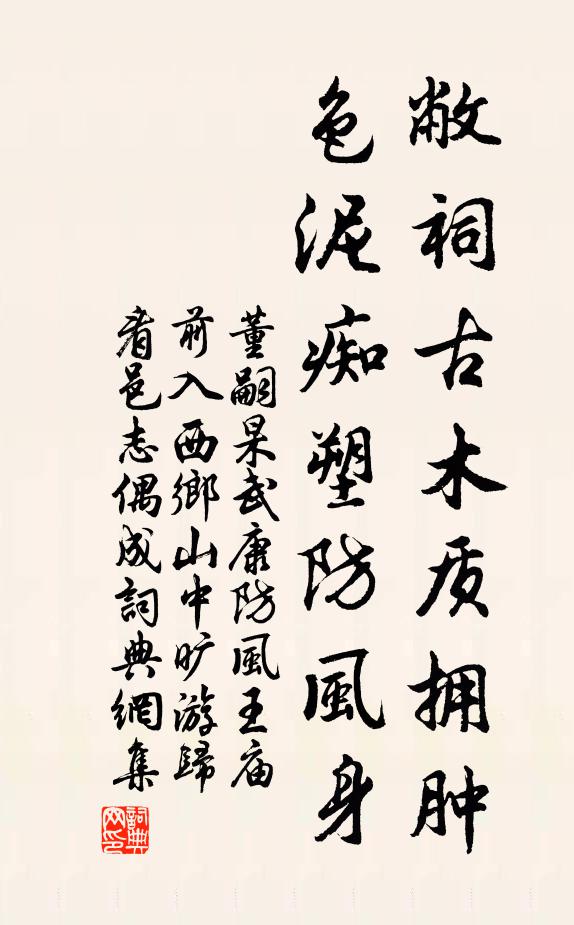 敝祠古木质拥肿
色泥痴塑防風身
董嗣杲武康防風王庙
前入西鄉山中旷游歸
看邑志偶成詞典網集
詞典
网印